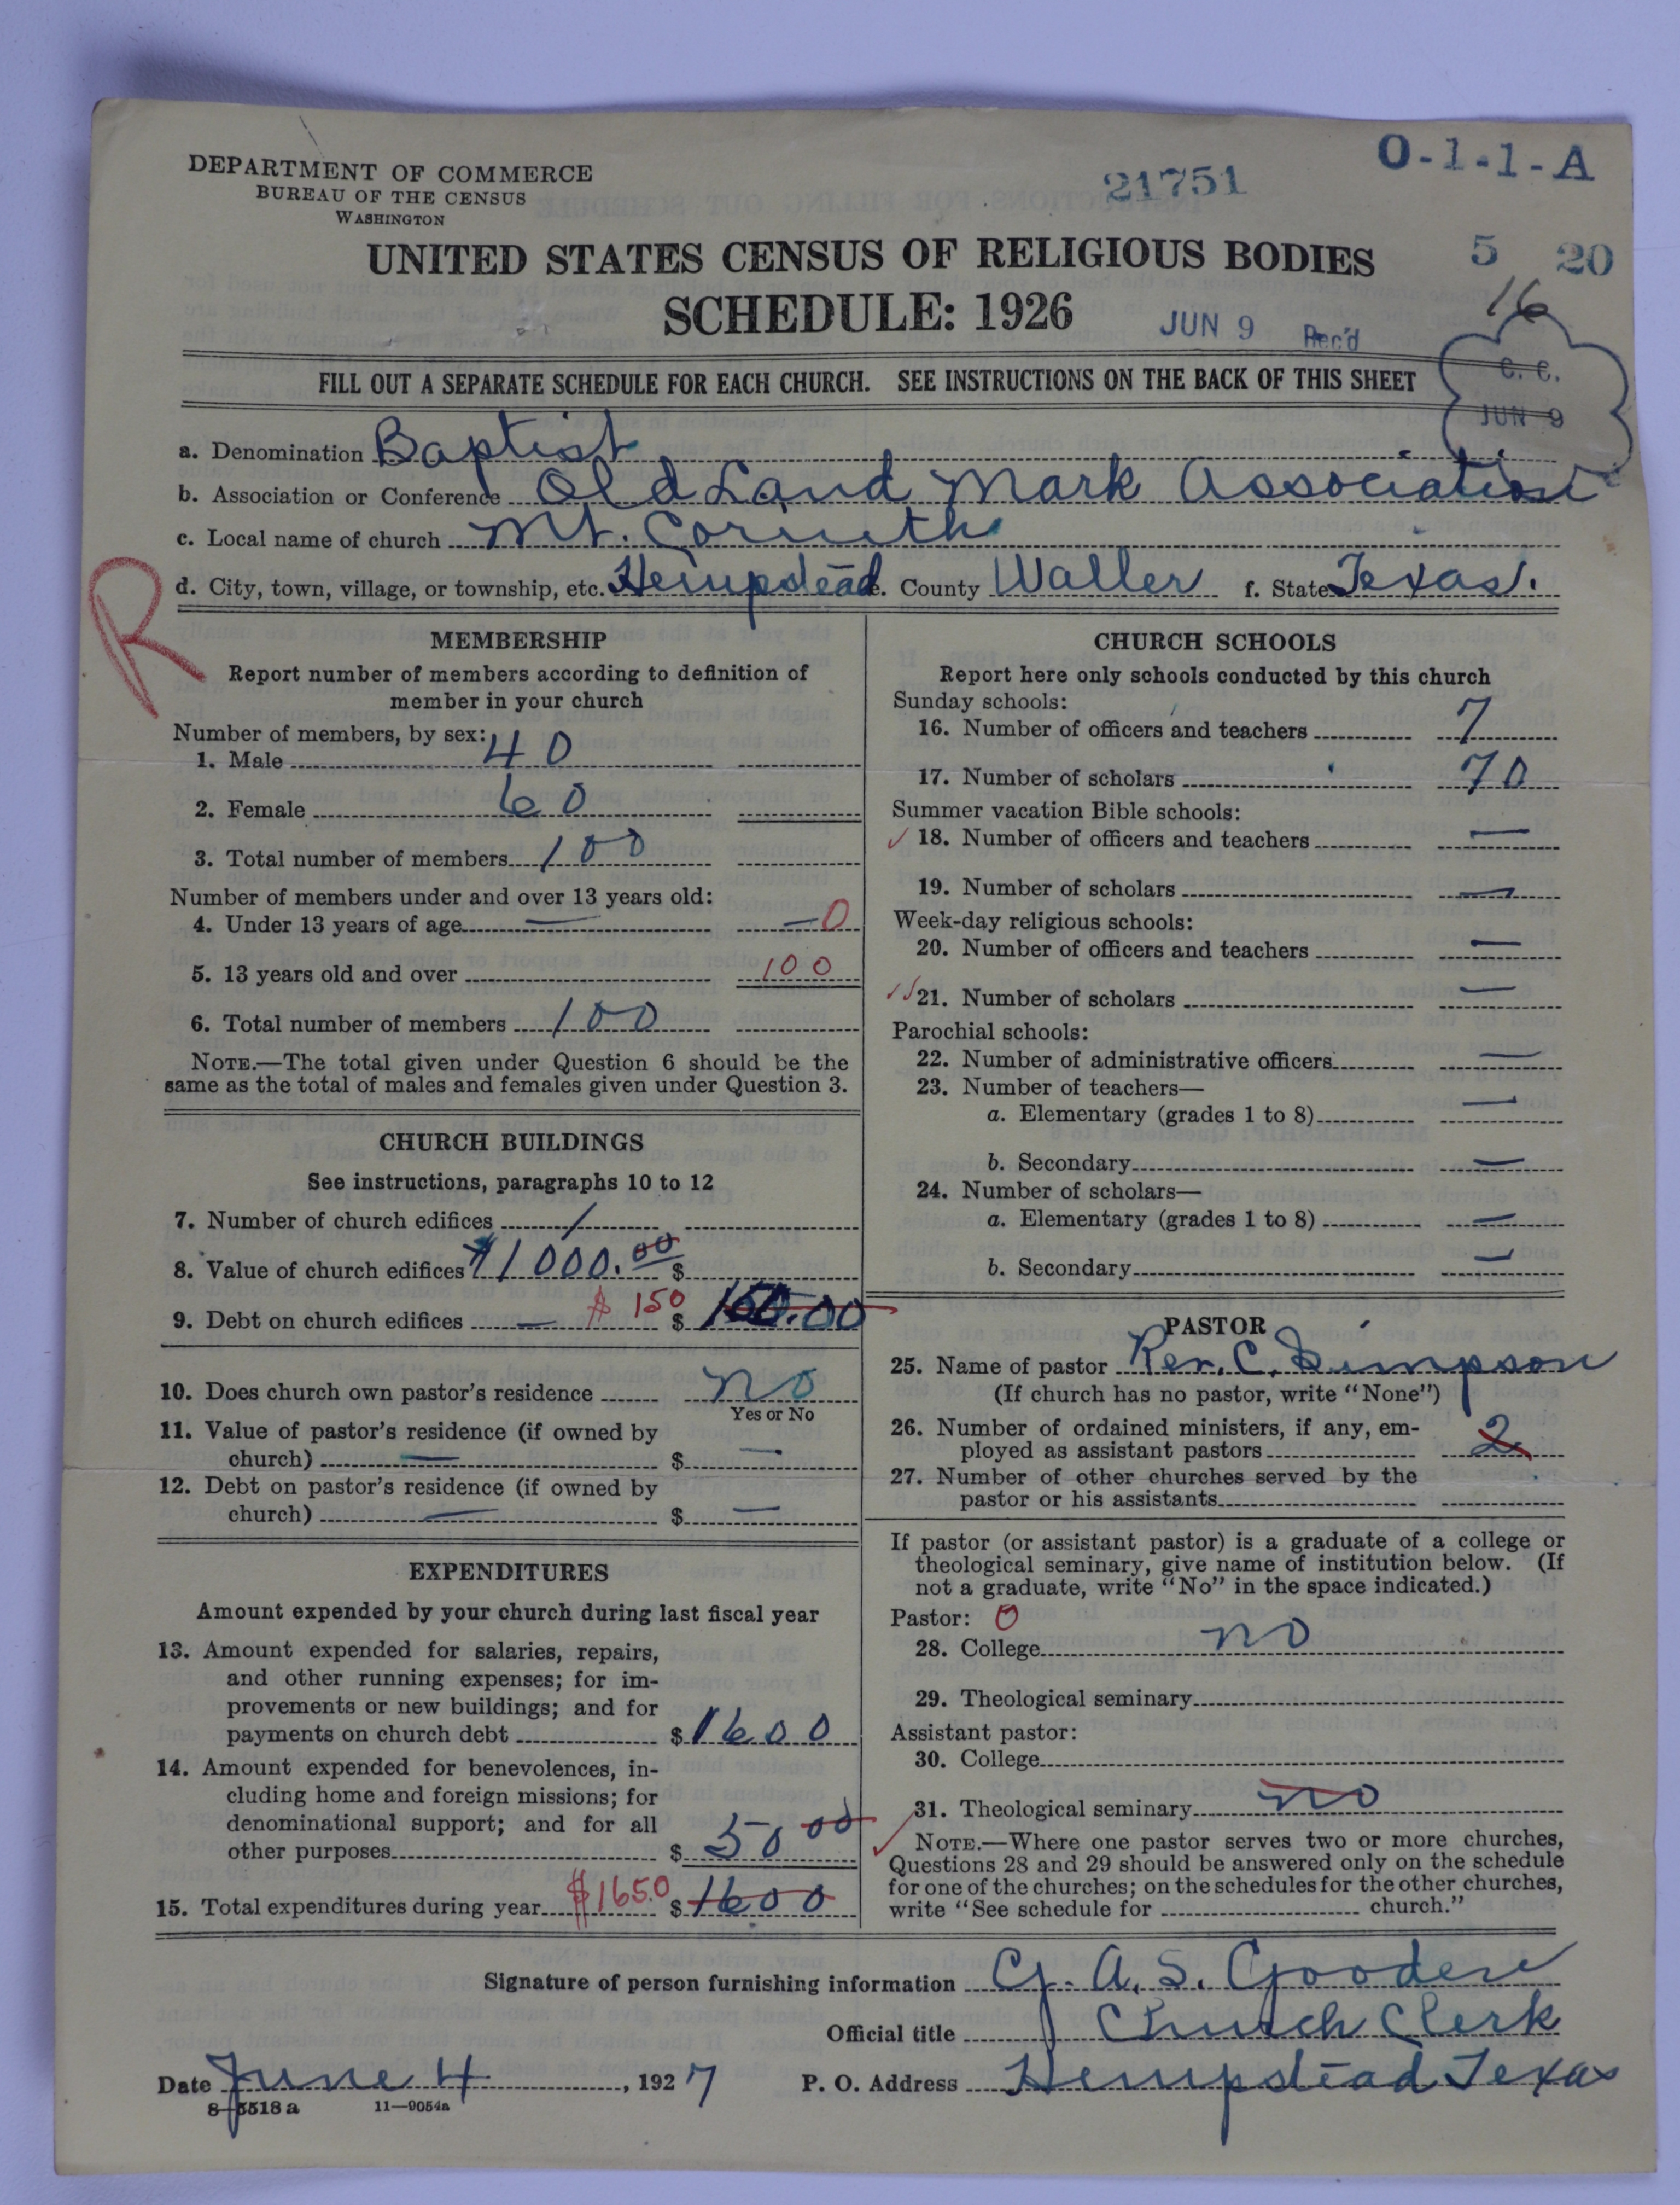 DEPARTMENT OF COMMERCE
BUREAU OF THE CENSUS
WASHINGTON
21751
O-1-1-A
UNITED STATES CENSUS OF RELIGIOUS BODIES
5 20
SCHEDULE: 1926
16
JUN 9 Rec'd
FILL OUT A SEPARATE SCHEDULE FOR EACH CHURCH. SEE INSTRUCTIONS ON THE BACK OF THIS SHEET
C. C.
JUN 9
a. Denomination Baptist
b. Association or Conference Old Land Mark Association
c. Local name of church Mt. Corinth
d. City, town, village, or township, etc. Hempstead e. County Waller f. State Texas.
R
MEMBERSHIP
Report number of members according to definition of
member in your church
Number of members, by sex:
1. Male 40
2. Female 60
3. Total number of members 100
Number of members under and over 13 years old:
4. Under 13 years of age — — 0
5. 13 years old and over 100
6. Total number of members 100
NOTE.—The total given under Question 6 should be the
same as the total of males and females given under Question 3.
CHURCH BUILDINGS
See instructions, paragraphs 10 to 12
7. Number of church edifices 1
8. Value of church edifices $1000.00 $
9. Debt on church edifices — $ 150 $ 150.00
10. Does church own pastor's residence no
Yes or No
11. Value of pastor's residence (if owned by
church) — $ —
12. Debt on pastor's residence (if owned by
church) — $ —
EXPENDITURES
Amount expended by your church during last fiscal year
13. Amount expended for salaries, repairs,
and other running expenses; for im-
provements or new buildings; and for
payments on church debt $ 1600
14. Amount expended for benevolences, in-
cluding home and foreign missions; for
denominational support; and for all
other purposes $ 50 00
15. Total expenditures during year $1650 $ 1600
CHURCH SCHOOLS
Report here only schools conducted by this church
Sunday schools:
16. Number of officers and teachers 7
17. Number of scholars 70
Summer vacation Bible schools:
18. Number of officers and teachers —
19. Number of scholars —
Week-day religious schools:
20. Number of officers and teachers —
21. Number of scholars —
Parochial schools:
22. Number of administrative officers —
23. Number of teachers—
a. Elementary (grades 1 to 8) —
b. Secondary —
24. Number of scholars—
a. Elementary (grades 1 to 8) —
b. Secondary —
PASTOR
25. Name of pastor Rev. C. Simpson
(If church has no pastor, write "None")
26. Number of ordained ministers, if any, em-
ployed as assistant pastors 2
27. Number of other churches served by the
pastor or his assistants
If pastor (or assistant pastor) is a graduate of a college or
theological seminary, give name of institution below. (If
not a graduate, write "No" in the space indicated.)
Pastor: 0
28. College no
29. Theological seminary
Assistant pastor:
30. College
31. Theological seminary no
NOTE.—Where one pastor serves two or more churches,
Questions 28 and 29 should be answered only on the schedule
for one of the churches; on the schedules for the other churches,
write "See schedule for church."
Signature of person furnishing information G. A. S. Gooden
Official title Church Clerk
Date June 4, 1927 P. O. Address Hempstead Texas
8-5518 a 11—9054a